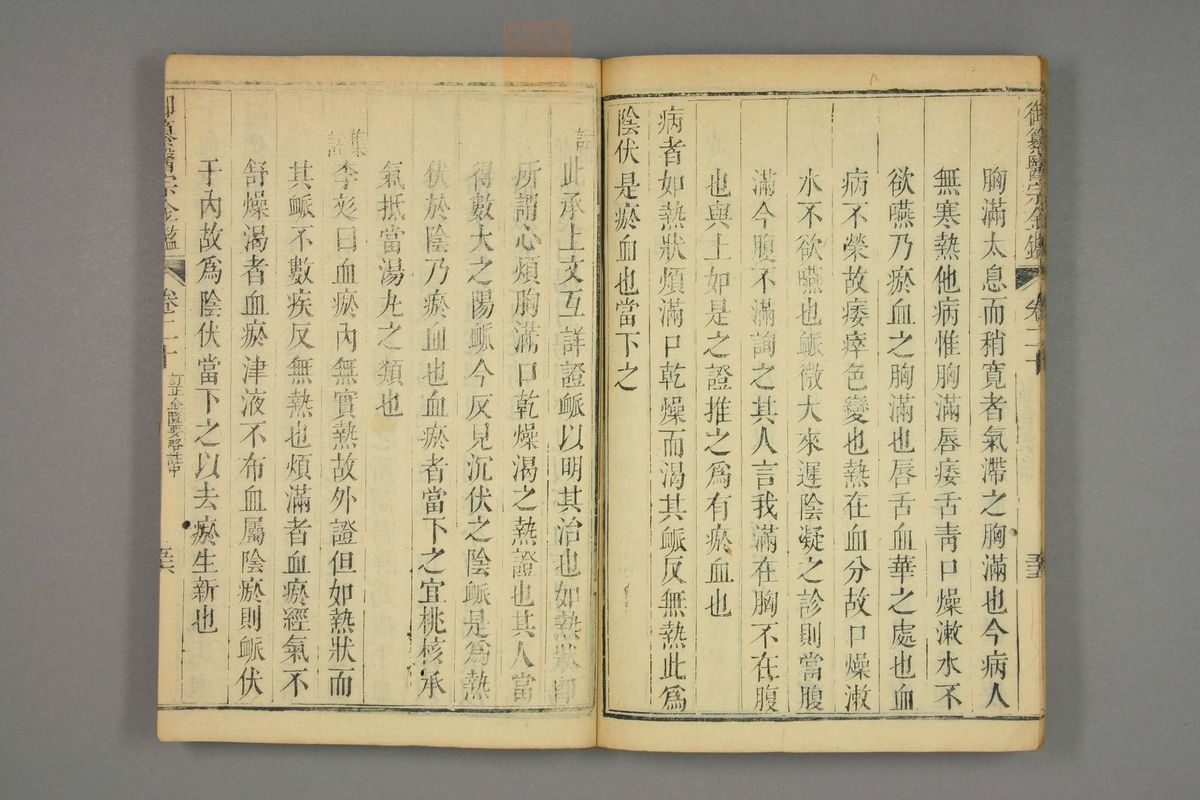 御纂醫宗金鑑 卷二十 五五
胸滿太息而稍寬者氣滯之胸滿也今病人
無寒熱他病惟胸滿唇痿舌青口燥漱水不
欲嚥乃瘀血之胸滿也唇舌血華之處也血
病不榮故痿瘁色變也熱在血分故口燥漱
水不欲嚥也脈微大來遲陰凝之診則當腹
滿今腹不滿詢之其人言我滿在胸不在腹
也與上如是之證推之爲有瘀血也
病者如熱狀煩滿口乾燥而渴其脈反無熱此爲
陰伏是瘀血也當下之
註 此承上文互詳證脈以明其治也如熱狀卽
所謂心煩胸滿口乾燥渴之熱證也其人當
得數大之陽脈今反見沉伏之陰脈是爲熱
伏於陰乃瘀血也血瘀者當下之宜桃核承
氣抵當湯丸之類也
集註 李彣曰血瘀內無實熱故外證但如熱狀而
其脈不數疾反無熱也煩滿者血瘀經氣不
舒燥渴者血瘀津液不布血屬陰瘀則脈伏
于內故爲陰伏當下之以去瘀生新也
御纂醫宗金鑑 卷二十 訂正金匱要略註中 五六